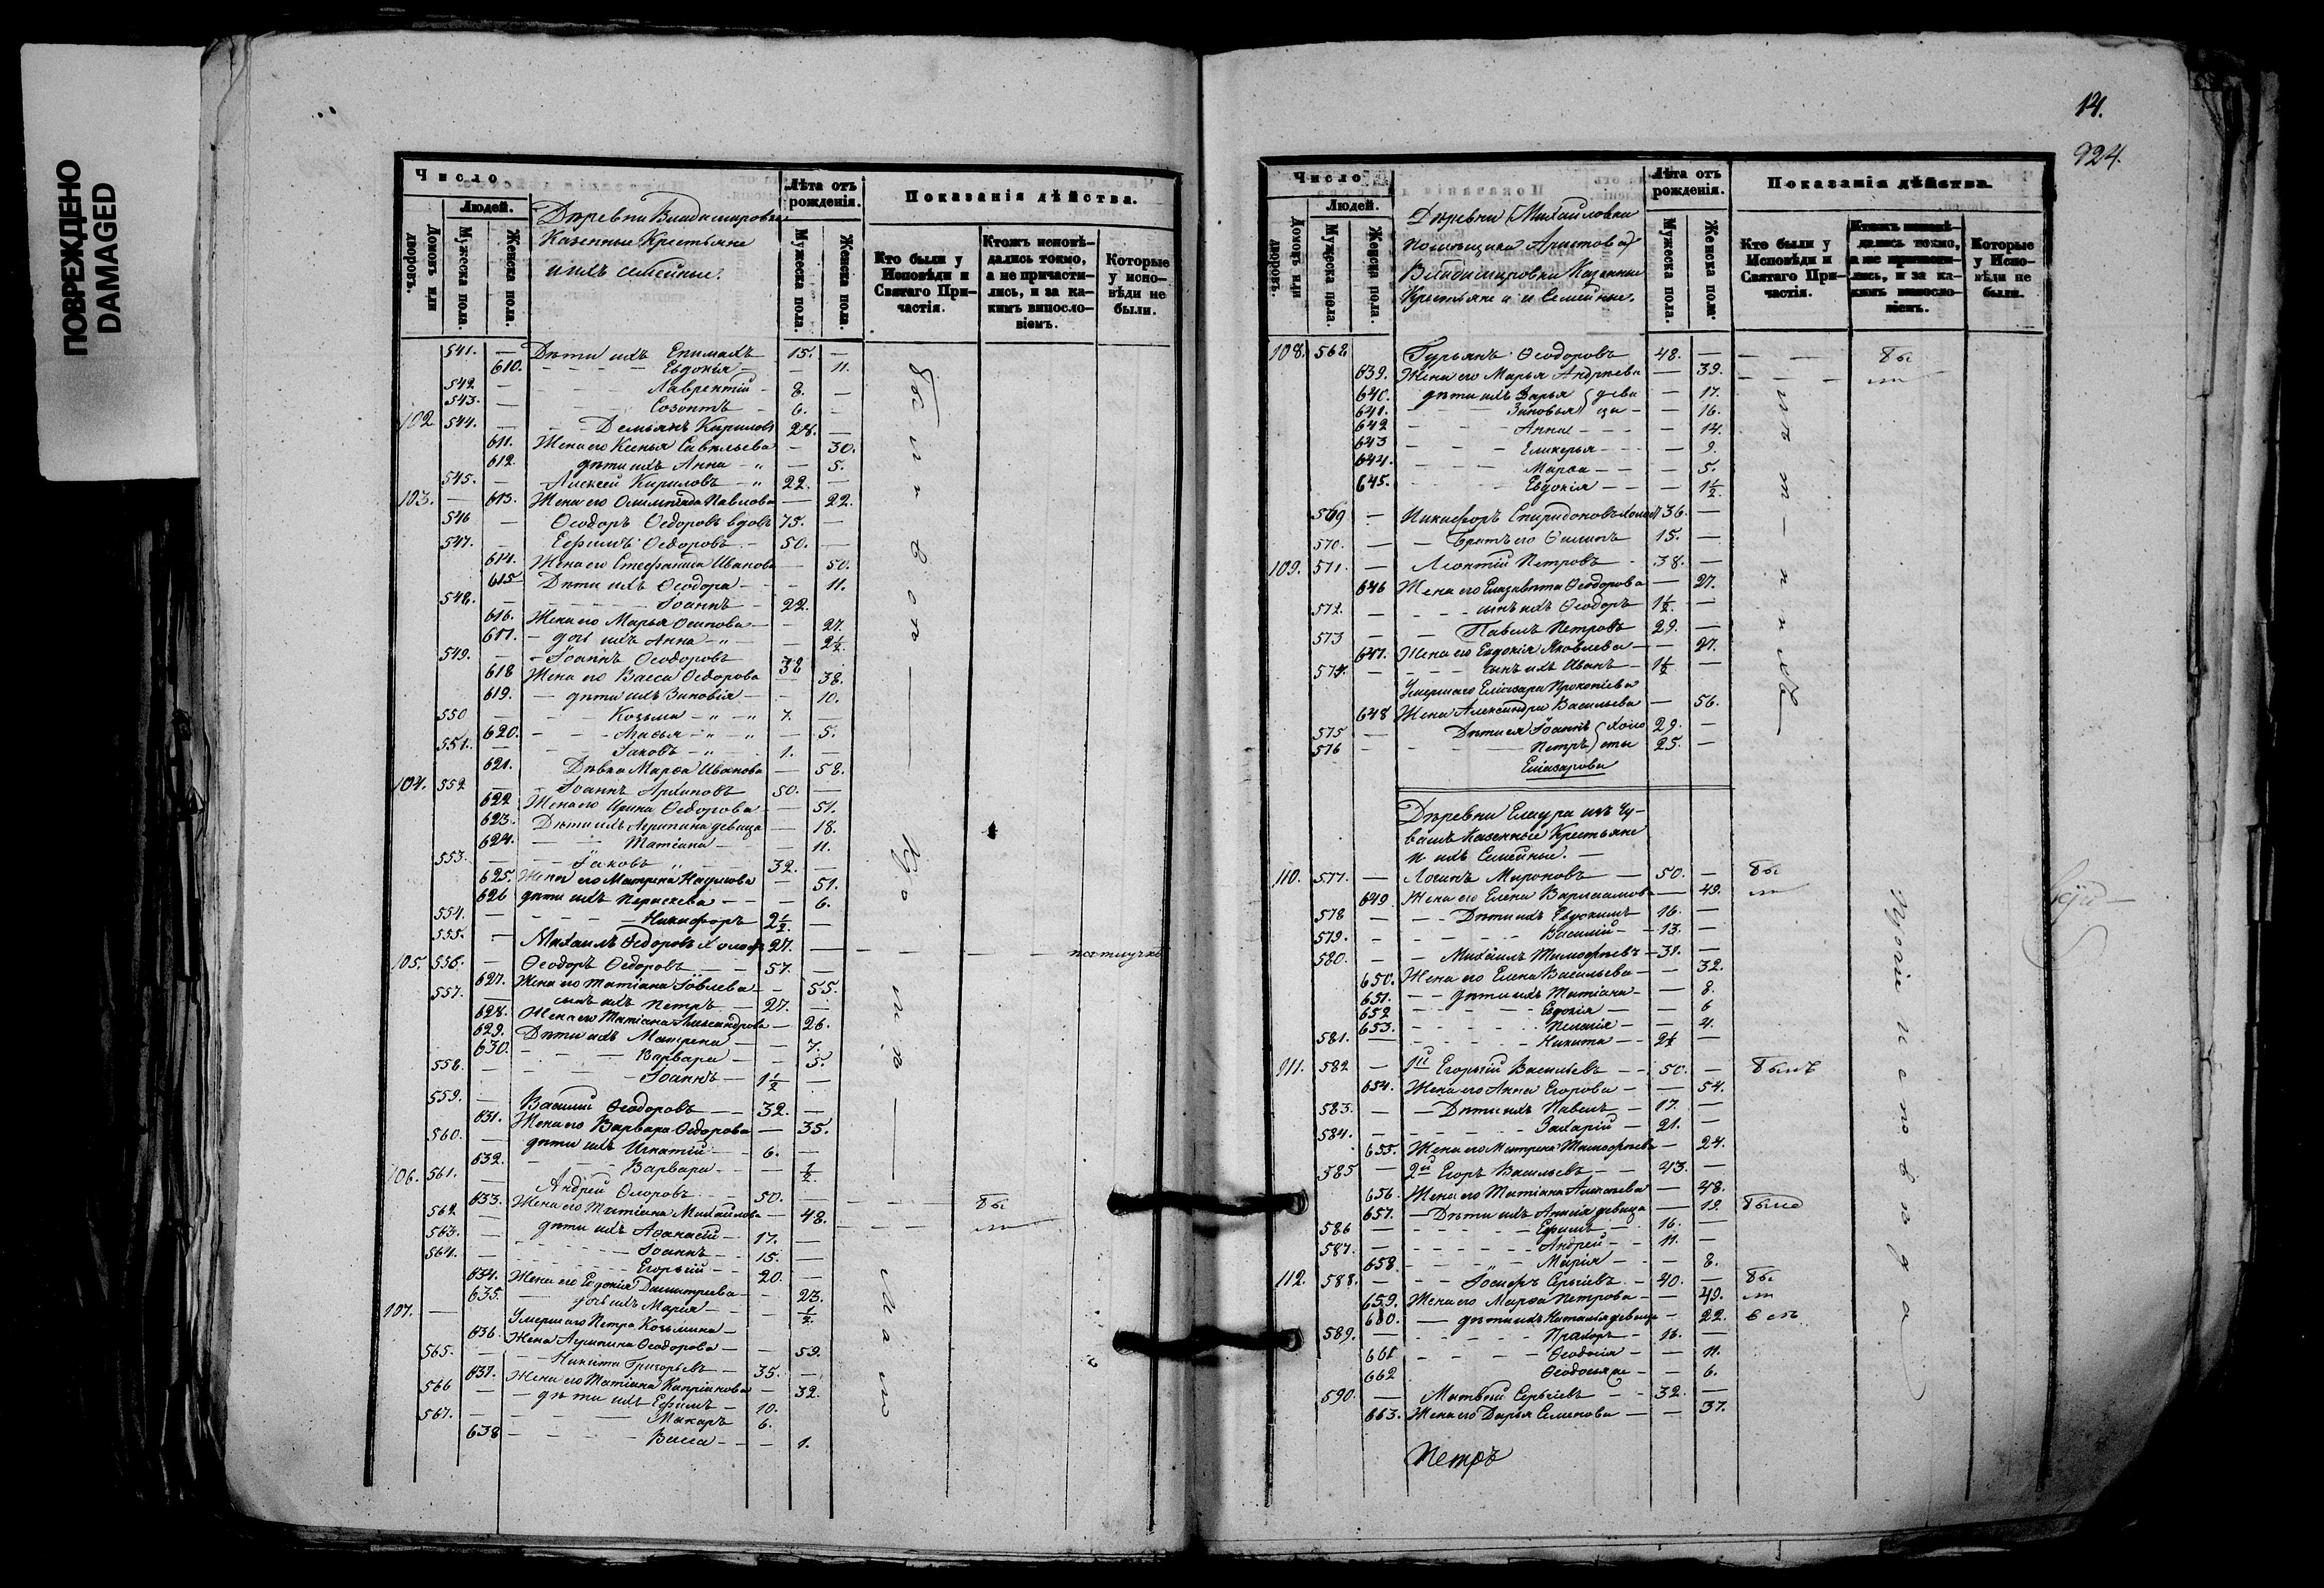 ПОВРЕЖДЕНО
DAMAGED
Число
Людей.
Домовъ или дворовъ.
Мужеска пола.
Женска пола.
Деревни Владимировки
Казенные Крестьяне
и ихъ семейные.
Лѣта отъ рожденія.
Мужеска пола.
Женска пола.
Показанія дѣйства.
Кто были у Исповѣди и Святаго Причастія.
Ктожъ исповѣдались токмо, а не причастились, и за какимъ винословіемъ.
Которые у исповѣди не были.
541. — Дѣти ихъ Епимахъ 15. —
610. Евдокія — 11.
542. — Лаврентій 8. —
543. — Созонтъ 6. —
102 544. — Демьянъ Кириловъ 28. —
611. Жена его Ксенья Савельева — 30.
612. дѣти ихъ Анна — 5.
545. — Алексей Кириловъ 22. —
103. — 613. Жена его Олимпiада Павлова — 22.
546 — Ѳеодоръ Ѳедоровъ вдовъ 75. —
547. — Ефимъ Ѳедоровъ 50. —
614. Жена его Стефанида Иванова — 50.
615 Дѣти ихъ Ѳеодора — 11.
548. — Іоаннъ 22.
616. Жена его Марья Осипова — 27.
617. дочь ихъ Анна — 2½.
549. — Іоаннъ Ѳеодоровъ 38
618 Жена его Васса Ѳедорова — 38.
619. дѣти ихъ Зиновія — 10.
550 — Козьма 7. —
620. — 5.
551. — Іаковъ 1. —
621. Дѣвка Марѳа Иванова — 58.
104. 552 — Іоаннъ Архиповъ 50. —
622 Жена его Ирина Ѳедорова — 51.
623. Дѣти ихъ Агрипина девица — 18.
624. Татіана — 11.
553. — Іаковъ 32. —
625. Жена его Матрена Наумова — 51.
626 дѣти ихъ Параскева — 6.
554. — Никифоръ 2½ —
555. — Михаилъ Ѳедоровъ холостъ 27. —
105. 556. — Ѳеодоръ Ѳедоровъ 57. —
627. Жена его Татіана Іовлева — 55.
557. — сынъ ихъ Петръ 27. —
628. Жена его Татіана Александрова — 26.
629. Дѣти ихъ Матрена — 7.
630. Варвара — 5.
558. — Іоаннъ 1½ —
559. — Василій Ѳеодоровъ 32. —
631. Жена его Варвара Ѳедорова — 35.
560. — дѣти ихъ Игнатій 6. —
632. Варвара — ½.
106. 561. — Андрей Ѳедоровъ 50. —
633. Жена его Татіана Михайлова — 48.
562. — дѣти ихъ Аѳанасій 17. —
563. — Іоаннъ 15. —
564. — Егорьій 20. —
634. Жена его Евдокія Дмитриева — 23.
635. дочь ихъ Марія — ½.
107. — Умершаго Петра Козьмина
636. Жена Агрипина Ѳеодорова — 59.
565. — Никита Григорьевъ 35. —
637. Жена его Татіана Кипріанова — 32
566 — дѣти ихъ Ефимъ 10.
567. — Макаръ 6.
638 Васса — 1.
Бы
ли
14.
924.
Число
Людей.
Домовъ или дворовъ.
Мужеска пола.
Женска пола.
Деревни (Михайловки
помѣщика Аристова)
Владимировки Казенные
Крестьяне и и Семейные.
Лѣта отъ рожденія.
Мужеска пола.
Женска пола.
Показанія дѣйства.
Кто были у Исповѣди и Святаго Причастія.
Ктожъ исповѣдались токмо, а не причастились, и за какимъ винословіемъ.
Которые у Исповѣди не были.
108. 568 Гурьянъ Ѳеодоровъ 48. — Бы
639. Жена его Марья Андреева — 39. ли
640. дѣти ихъ Дарья деви — 17.
641. Зиновья цы — 16.
642 Анна — 14.
643 Гликерья — 9.
644. Марѳа — 5.
645. Евдокія — 1½.
569 — Никифоръ Спиридоновъ холост 36. —
570. — Братъ его Филипъ 15. —
109. 571. — Леонтій Петровъ 38. —
646 Жена его Елизавета Ѳеодорова — 27.
572. — сынъ ихъ Ѳеодоръ 1½. —
573 — Павелъ Петровъ 29. —
647. Жена его Евдокія Яковлева — 27.
574. — сынъ ихъ Иванъ 1½ —
Умершаго Еліазара Прокопіева
648 Жена Александра Васильева — 56.
575 — Дѣти ея Іоаннъ холо 29. —
576 — Петръ сты 25. —
Еліазарова
Деревни Елаура изъ Чу-
вашъ Казенные Крестьяне
и ихъ Семейные.
110. 577. — Логинъ Мироновъ 50. — Бы
649 Жена его Елена Варлаамова — 49. ли
578 — Дѣти ихъ Евдокимъ 16. —
579. — Василій 13. —
580. — Михаилъ Тимоѳеевъ 31. —
650. Жена его Елена Васильева — 32.
651. дѣти ихъ Татіана — 8.
652 Евдокія — 6
653. Пелагія — 4.
581. — Никита 2½ —
111. 582 — 1й Егорьій Васильевъ 50. — Былъ
654. Жена его Анна Егорова — 54.
583. — Дѣти ихъ Павелъ 17. —
584. — Захарій 21. —
655. Жена его Матрена Тимоѳеева — 24.
585 — 2й Егоръ Васильевъ 43. —
656. Жена его Татіана Алексеева — 48.
657. Дѣти ихъ девица — 19. Была
586 — Ефимъ 16. —
587. — Андрей 11. —
658 Марія — 8.
112. 588. — Іосифъ Сергіевъ 40. — Бы
659. Жена его Марѳа Петрова — 49. ли
660. дѣти ихъ Наталья девица — 22. всѣ
589. — Прохоръ 16. —
661 Ѳеодосія — 11.
662 — 6.
590. — Матвей Сергіевъ 32. —
663. Жена его Дарья Семенова — 37.
Петръ